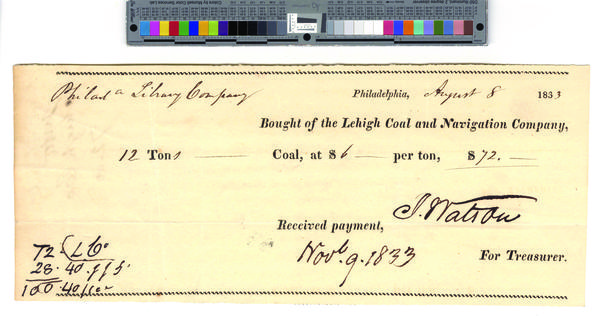 Philad a Library Company
Philadelphia, August 8 1833
Bought of the Lehigh Coal and Navigation Company,
12 Tons Coal, at $6 per ton, $72.
J. Watson
Received payment,
Novb. 9. 1833 For Treasurer.
72
28. 40.
100. 40